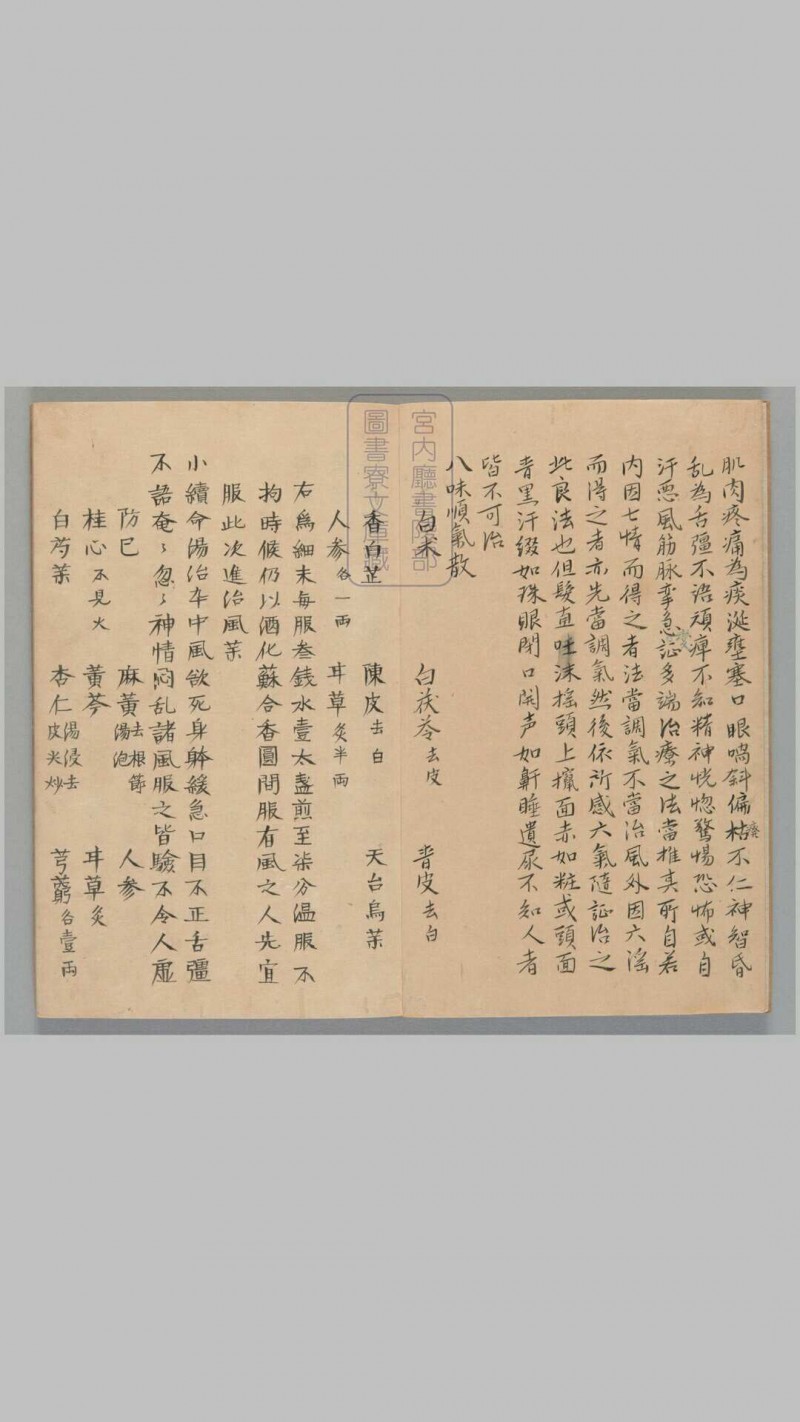 肌肉疼痛為痰涎壅塞口眼喎斜偏枯不仁神智昏
乱為舌彊不語頑痺不知精神恍惚驚惕恐怖或自
汗惡風筋脉挛急証多端治療之法當推其所自若
内因七情而得之者法當調氣不當治風外因六滛
而得之者亦先當調氣然後依所感六氣隨証治之
此良法也但髮直吐沫摇頭上攛面赤如粧或頭面
青黑汗綴如珠眼閉口開声如鼾睡遺尿不知人者
皆不可治
八味順氣散
白术 白茯苓去皮 青皮去白
香白芷 陳皮去白 天台烏茱
人参各一両 耳草炙半両
右為細末毎服叁錢水壹大盞煎至柒分温服不
拘時候仍以酒化蘇合香圓間服有風之人先宜
服此次進治風茱
小續命湯治卒中風欲死身躰緩急口目不正舌彊
不語奄〻忽〻神情悶乱諸風服之皆驗不令人虚
防巳 麻黄去根節湯泡 人参
桂心不見火 黄芩 耳草炙
白芍茱 杏仁湯浸去皮尖炒 芎藭各壹両
宮内廳書陵部
圖書寮文庫蔵